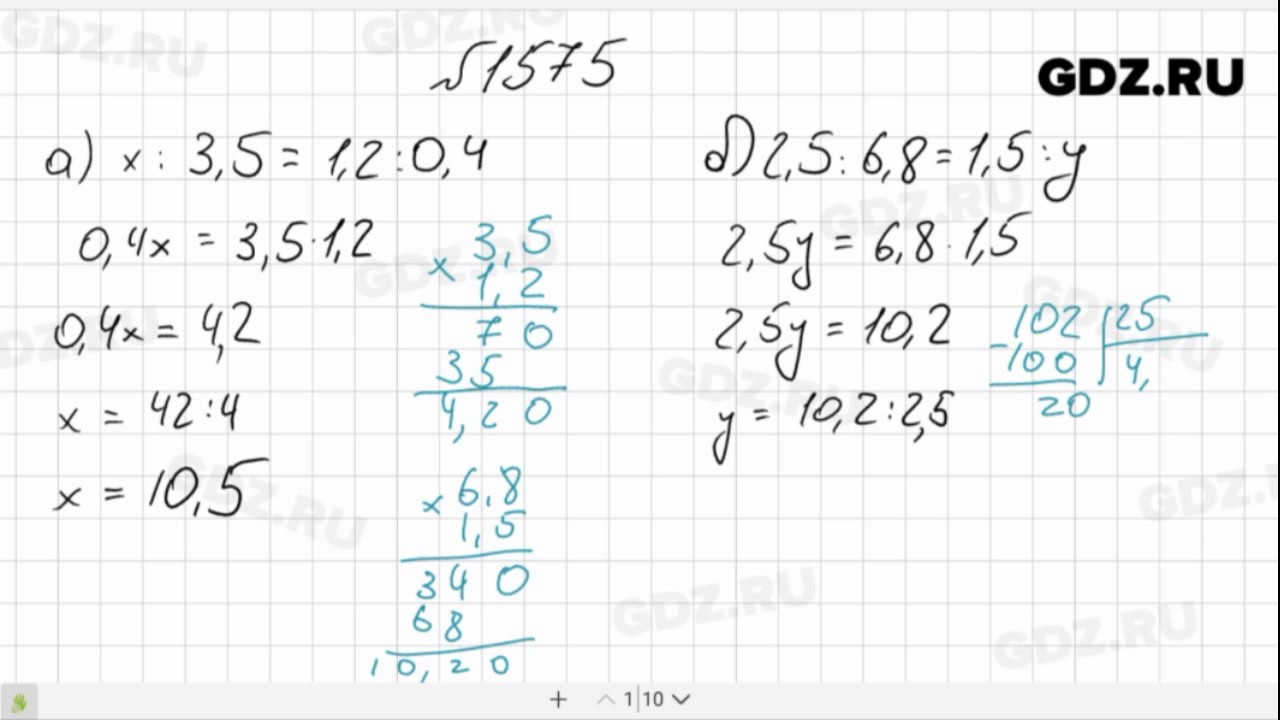 №1575
GDZ.RU
а) x : 3,5 = 1,2 : 0,4
0,4x = 3,5 · 1,2
0,4x = 4,2
x = 42 : 4
x = 10,5
3,5
× 1,2
70
35
4,20
× 6,8
1,5
340
68
10,20
б) 2,5 : 6,8 = 1,5 : y
2,5y = 6,8 · 1,5
2,5y = 10,2
y = 10,2 : 2,5
102 | 25
-100 | 4,
20
+ 1|10